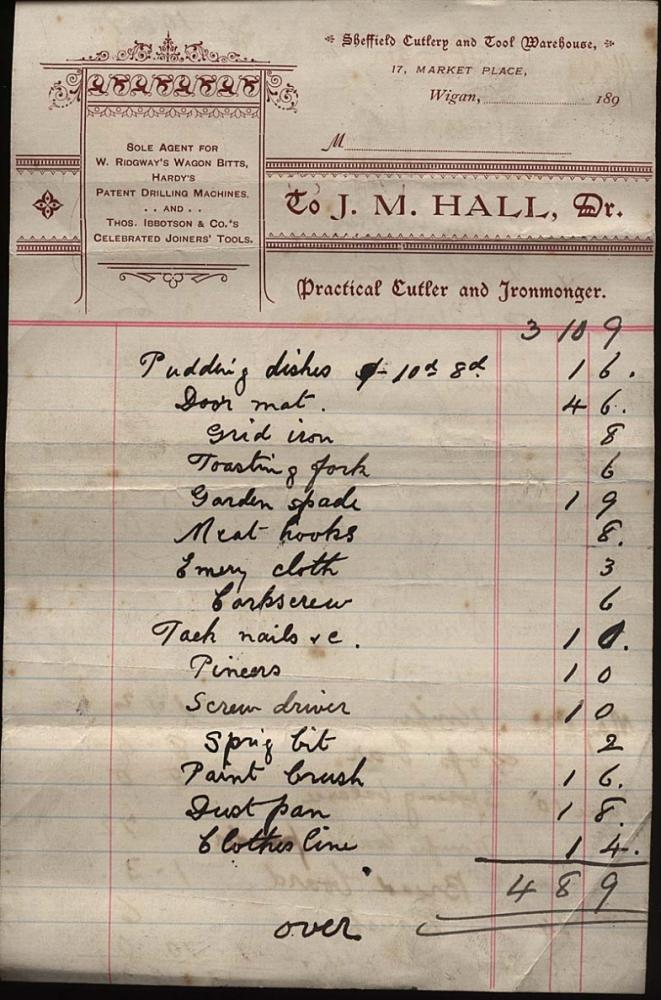 Sheffield Cutlery and Tool Warehouse,
17, MARKET PLACE,
Wigan, 189
M
SOLE AGENT FOR
W. RIDGWAY'S WAGON BITTS,
HARDY'S
PATENT DRILLING MACHINES.
. . AND . .
THOS. IBBOTSON & CO.'S
CELEBRATED JOINERS' TOOLS.
To J. M. HALL, Dr.
Practical Cutler and Ironmonger.
3 10 9
Pudding dishes 10d 8d 1 6.
Door mat. 4 6.
Grid iron 8
Toasting fork 6
Garden spade 1 9
Meat hooks 8.
Emery cloth 3
Corkscrew 6
Tack nails &c. 1 0.
Pincers 1 0
Screw driver 1 0
Sprig bit 2
Paint brush 1 6.
Dust pan 1 8.
Clothes line 1 4.
4 8 9
over